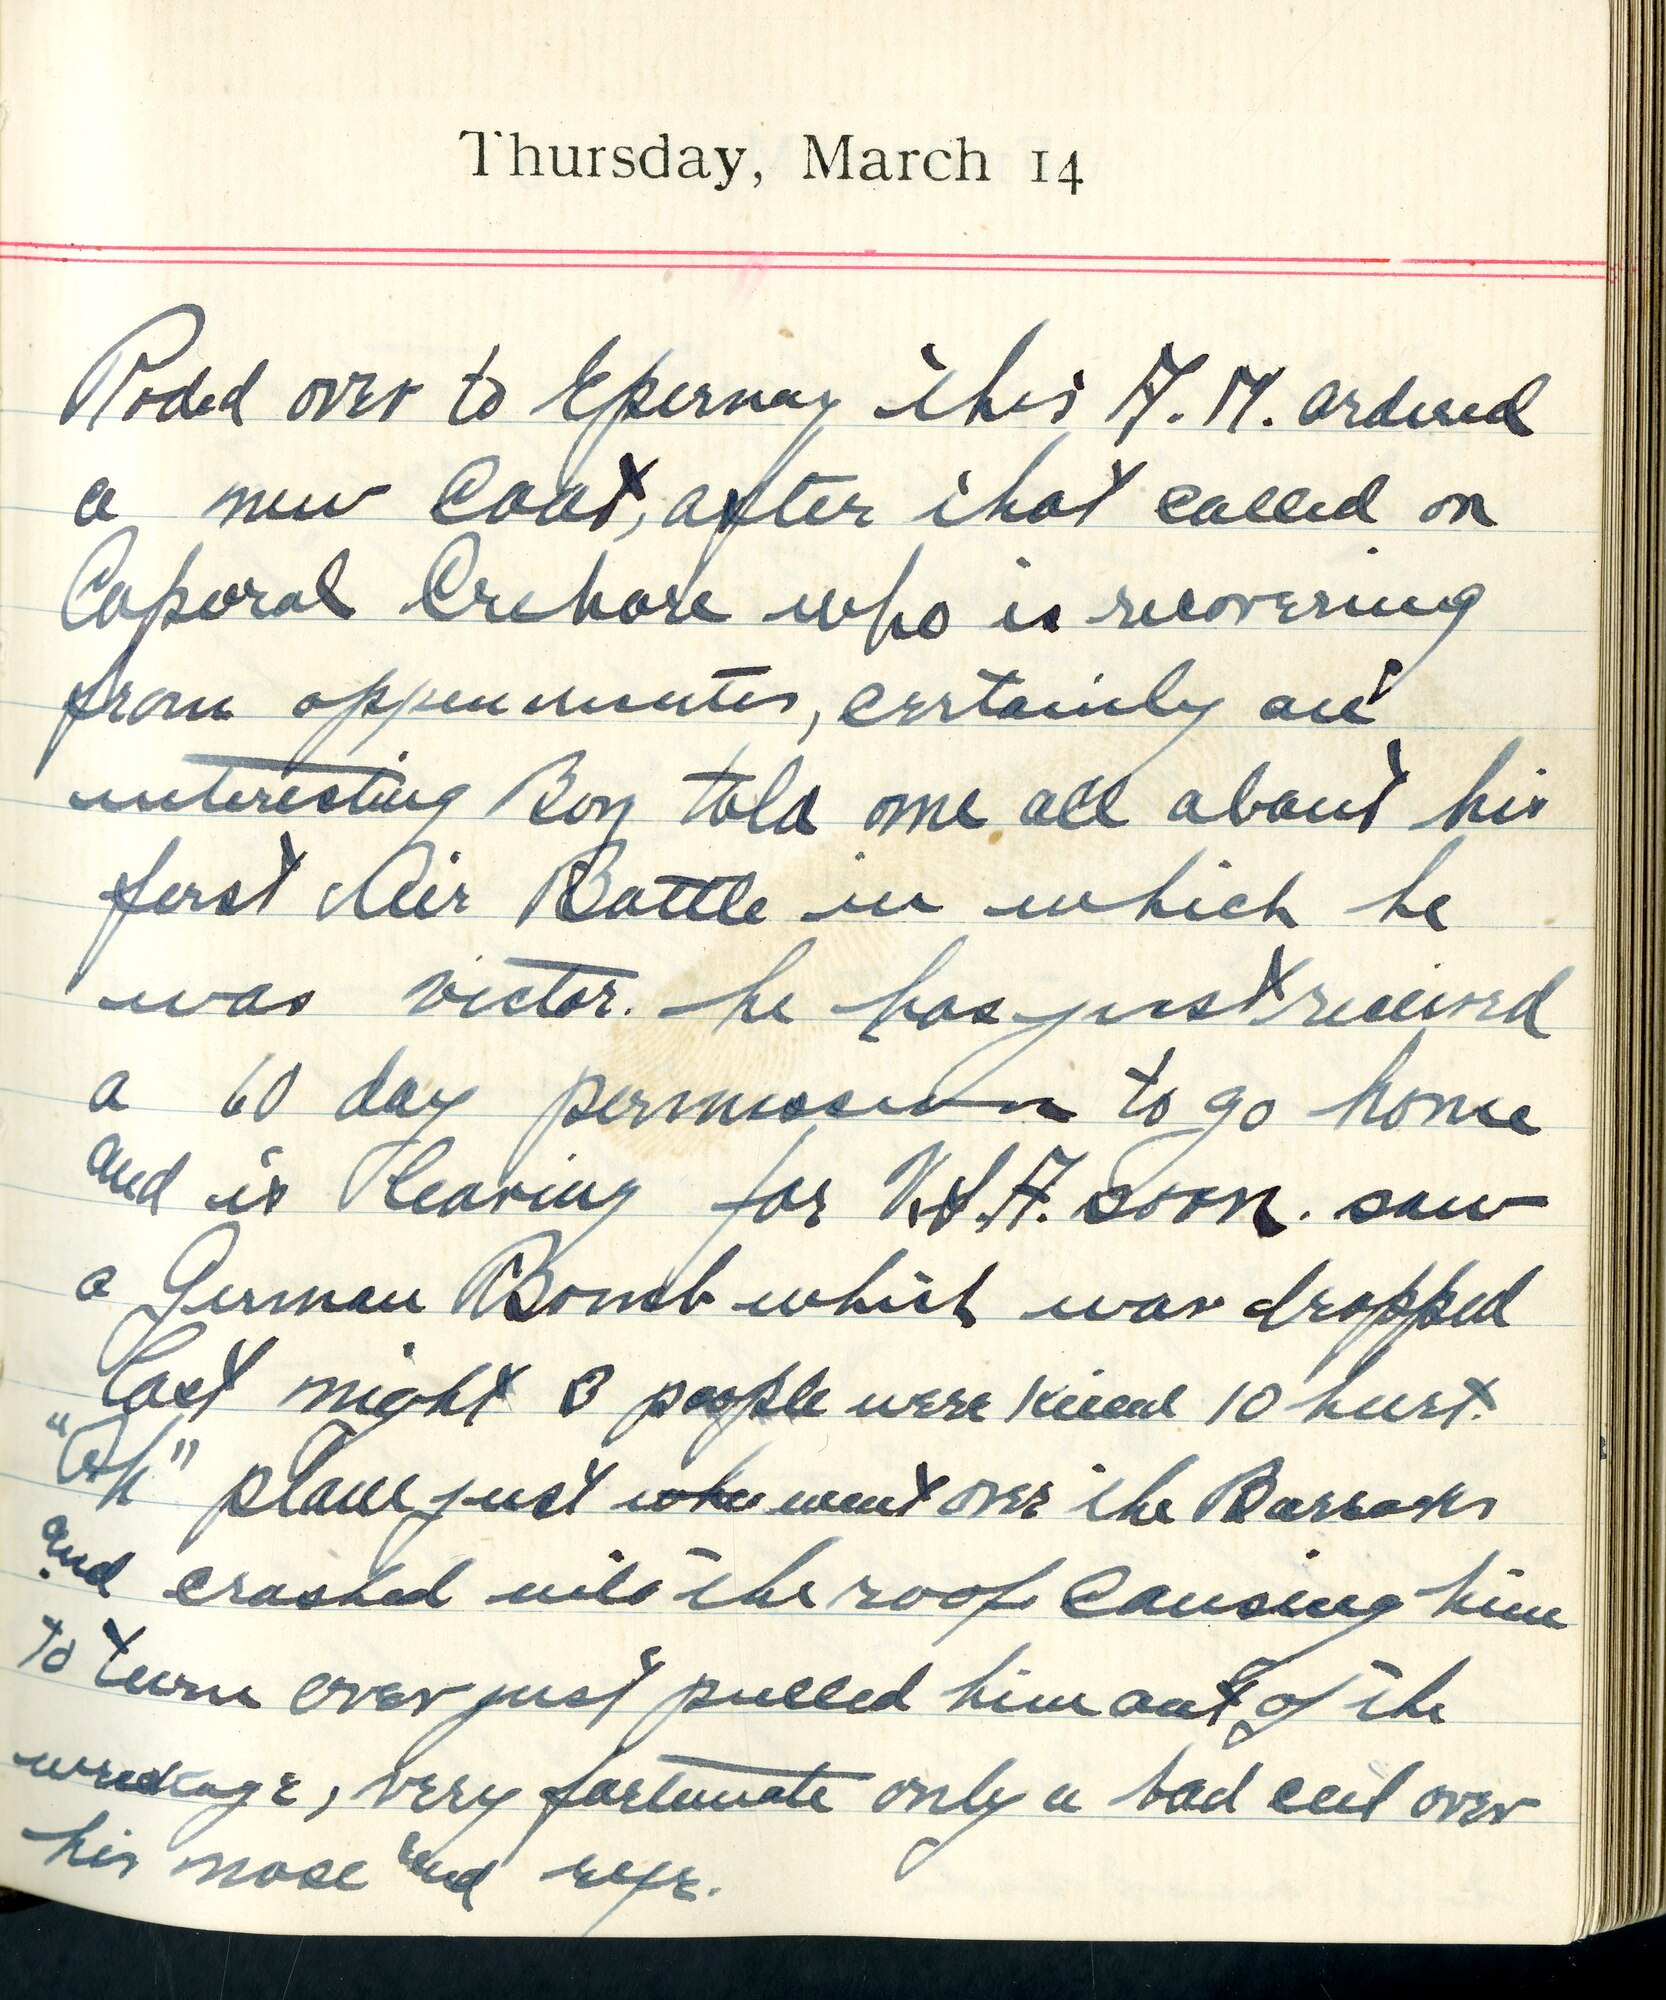 Thursday, March 14
Roded over to Epernay this A.M. ordered
a new Coat, after that called on
Caporal Crehore who is recovering
from appenesnutes, certainly an
interesting Boy told me all about his
first Air Battle in which he
was victor. he has just received
a 60 day permission to go home
and is leaving for U.S.A. soon. saw
a German Bomb which was dropped
last night 3 people were killed 10 hurt.
plane just went over the Barraks
and crashed into the roof Causing him
to turn over just pulled him out of the
wreckage, very fortunate only a bad cut over
his nose and eye.